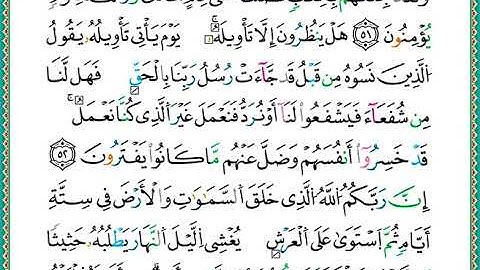 يُؤْمِنُونَ ٥١ هَلْ يَنظُرُونَ إِلَّا تَأْوِيلَهُۥ ۚ يَوْمَ يَأْتِى تَأْوِيلُهُۥ يَقُولُ
ٱلَّذِينَ نَسُوهُ مِن قَبْلُ قَدْ جَآءَتْ رُسُلُ رَبِّنَا بِٱلْحَقِّ فَهَل لَّنَا
مِن شُفَعَآءَ فَيَشْفَعُوا۟ لَنَآ أَوْ نُرَدُّ فَنَعْمَلَ غَيْرَ ٱلَّذِى كُنَّا نَعْمَلُ ۚ
قَدْ خَسِرُوٓا۟ أَنفُسَهُمْ وَضَلَّ عَنْهُم مَّا كَانُوا۟ يَفْتَرُونَ ٥٢
إِنَّ رَبَّكُمُ ٱللَّهُ ٱلَّذِى خَلَقَ ٱلسَّمَٰوَٰتِ وَٱلْأَرْضَ فِى سِتَّةِ
أَيَّامٍ ثُمَّ ٱسْتَوَىٰ عَلَى ٱلْعَرْشِ يُغْشِى ٱلَّيْلَ ٱلنَّهَارَ يَطْلُبُهُۥ حَثِيثًا